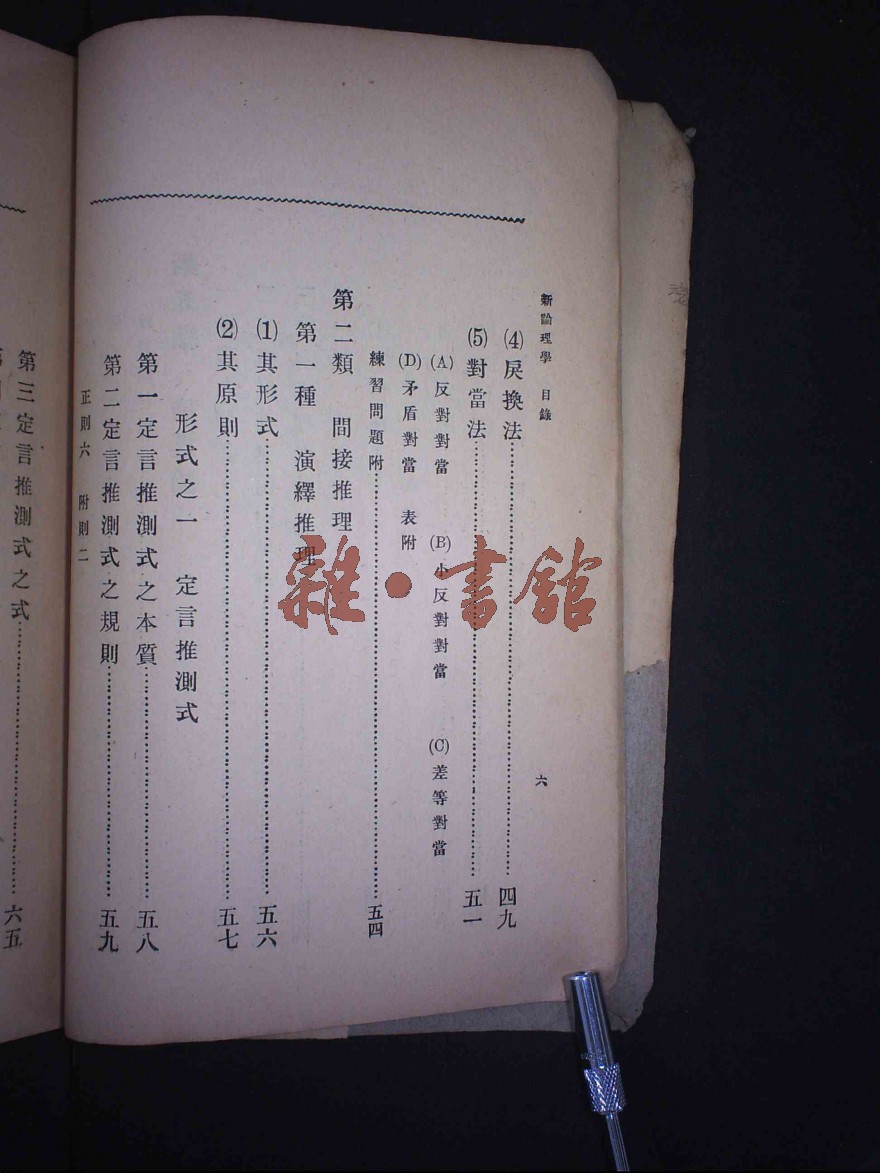 新論理學 目錄 六
(4)戾換法……四九
(5)對當法……五一
(A)反對對當 (B)小反對對當 (C)差等對當
(D)矛盾對當 表附
練習問題附……五四
第二類 間接推理
第一種 演繹推理
(1)其形式……五六
(2)其原則……五七
形式之一 定言推測式
第一定言推測式之本質……五八
第二定言推測式之規則……五九
正則六 附則二
第三定言推測式之式……六五
雜·書館